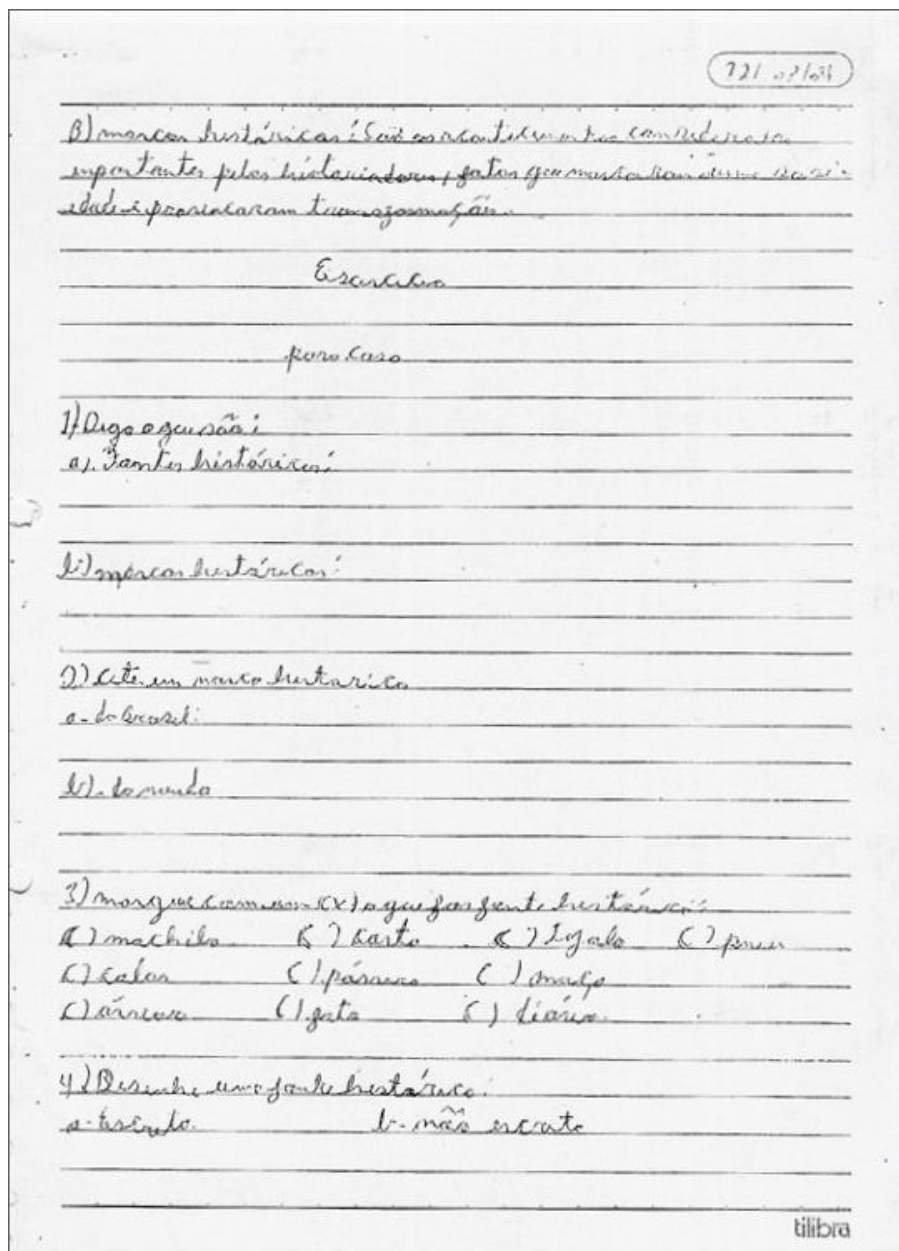 B) marcos históricos: São os acontecimentos considerados
importantes pelos historiadores, fatos que marcaram uma soci-
edade e provocaram transformação.
Exercicio
para casa
1) Diga o que são:
a). Fontes históricas:
b) marcos históricos:
2) Cite um marco historico
a- do Brasil:
b). do mundo
3) marque com um (x) o que for fonte histórica:
( ) mochila ( ) carta ( ) ( ) pneu
( ) colar ( ) pássaro ( )
( ) árvore ( ) gato ( ) diário.
4) Desenhe uma fonte histórica:
a- Escrita. b- não escrita
tilibra